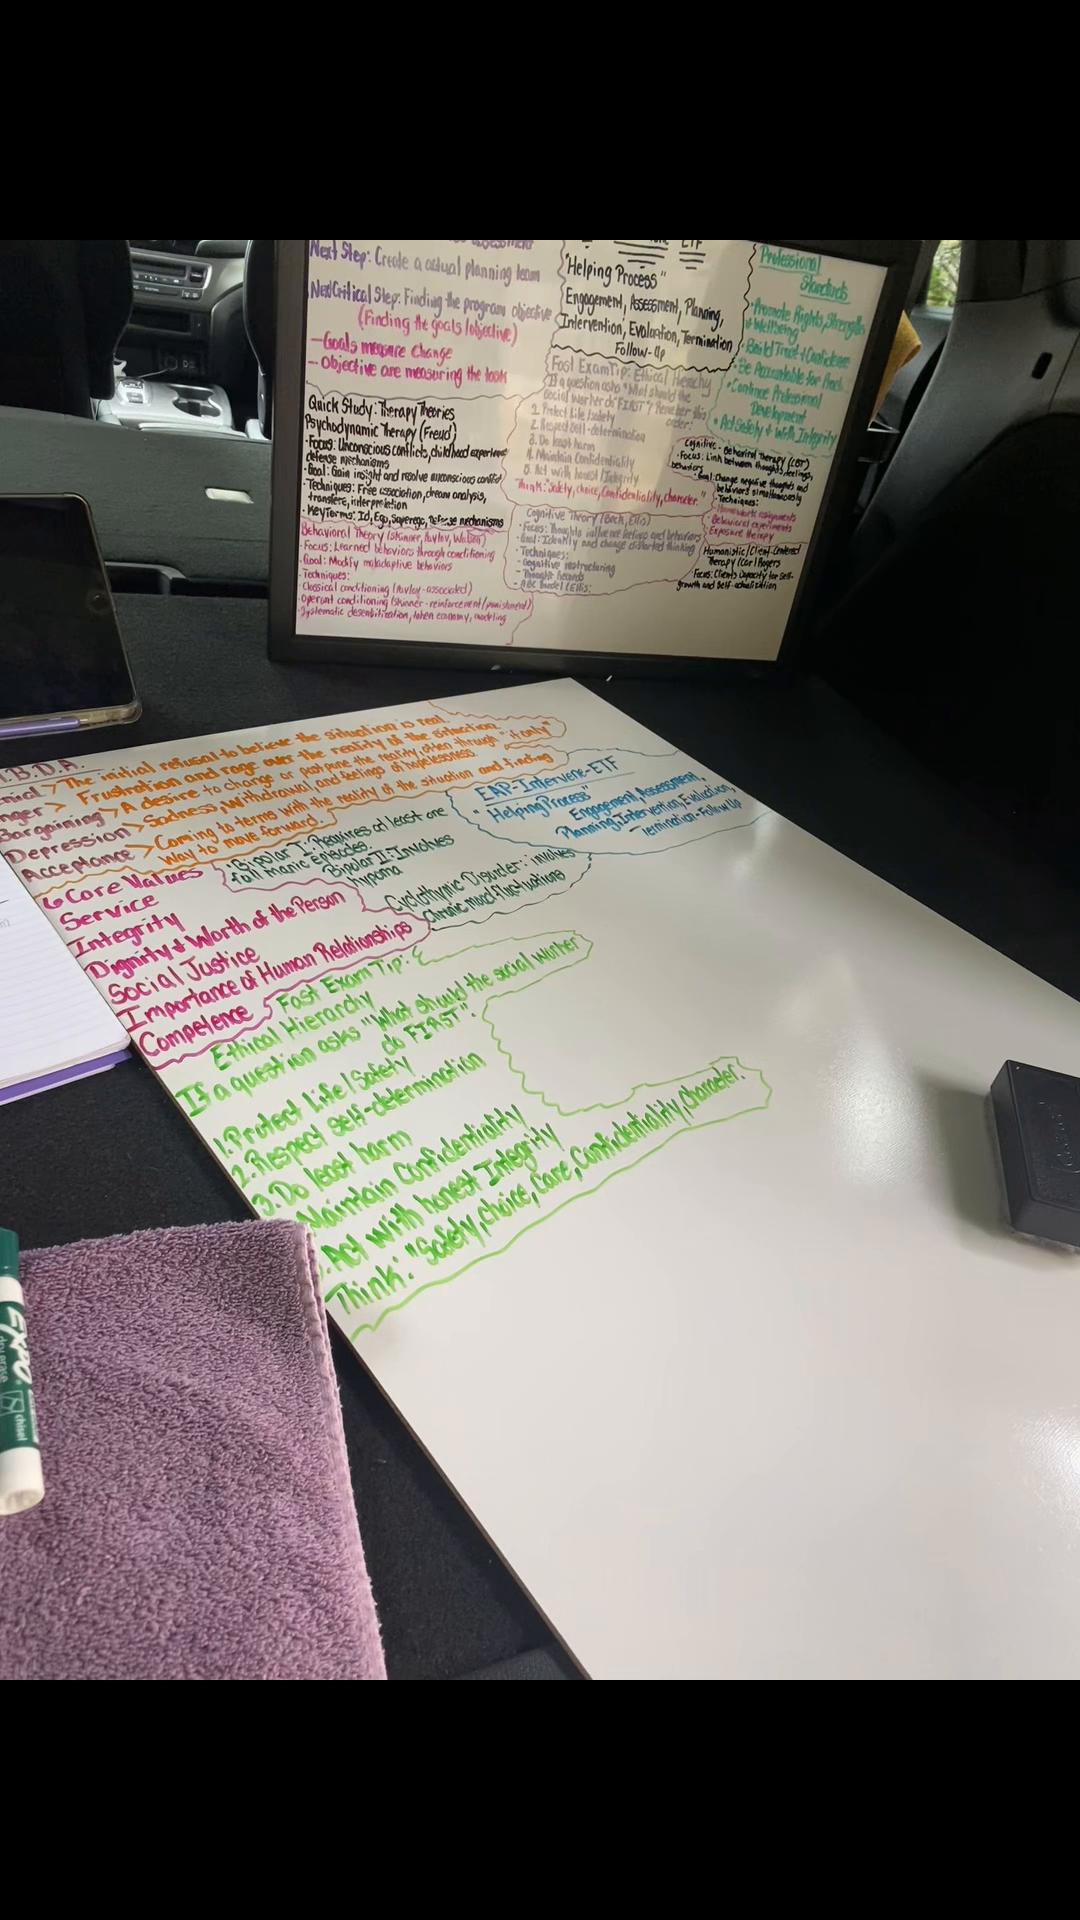 Next Step: Create a actual planning team
Next Critical Step: Finding the program objective
(Finding the goals/objective)
- Goals measure change
- Objective are measuring the tools
Quick Study: Therapy Theories
Psychodynamic Therapy (Freud)
• Focus: Unconscious conflicts, childhood experiences
defense mechanisms
• Goal: Gain insight and resolve unconscious conflict
• Techniques: Free association, dream analysis,
transfere, interpretation
• Key Terms: Id, Ego, Superego, Defense mechanisms
Behavioral Theory (Skinner, Pavlov, Watson)
• Focus: Learned behaviors through conditioning
• Goal: Modify maladaptive behaviors
• Techniques:
Classical conditioning (Pavlov-associated)
Operant conditioning (Skinner-reinforcement/punishment)
Systematic desensitization, token economy, modeling
ETF
"Helping Process"
Engagement, Assessment, Planning,
Intervention, Evaluation, Termination
Follow-Up
Fast Exam Tip: Ethical Hierachy
If a question asks "What should the
social worker do "FIRST"? Remember this
order:
1. Protect Life/Safety
2. Respect Self-determination
3. Do least harm
4. Maintain Confidentiality
5. Act with honest/Integrity
Think: "Safety, choice, Confidentiality, character."
Cognitive Theory (Beck, Ellis)
• Focus: Thoughts influence feelings and behaviors
• Goal: Identify and change distorted thinking
• Techniques:
- Cognitive restructuring
- Thought Records
- ABC Model (Ellis:
Professional
Standards
• Promote Rights, Strengths
+ Wellbeing
• Build Trust + Confidence
• Be Accountable for
• Continue Professional
Development
• Act Safely + With Integrity
Cognitive-Behavioral Therapy (CBT)
• Focus: Link between thoughts, feelings,
behaviors
• Goal: Change negative thoughts and
behaviors simultaneously
• Techniques:
• Homework assignments
• Behavioral experiments
• Exposure therapy
Humanistic/Client-Centered
Therapy (Carl Rogers
Focus: Clients capacity for self-
growth and self-actualization
.B.D.A.
> The initial refusal to believe the situation is real.
nger > Frustration and rage over the reality of the situation
Bargaining > A desire to change or postpone the reality, often through "if only"
Depression > Sadness, withdrawal, and feelings of hopelessness.
Acceptance > Coming to terms with the reality of the situation and finding
way to move forward.
EAP-Intervene-ETF
"Helping Process"
Engagement, Assessment,
Planning, Intervention, Evaluation,
Termination-Follow Up
• Bipolar I: Requires at least one
full manic episodes.
Bipolar II: Involves
hypoma
Cyclothymic Disorder: involves
chronic mood fluctuations
6 Core Values
Service
Integrity
Dignity + Worth of the Person
Social Justice
Importance of Human Relationships
Competence
Fast Exam Tip:
Ethical Hierarchy
If a question asks "What should the social worker
do FIRST".
1. Protect Life/Safety
2. Respect Self-determination
3. Do least harm
Maintain Confidentiality
. Act with honest Integrity
Think: "Safety, choice, Care, Confidentiality, Character.
EXPO
dry erase
chisel